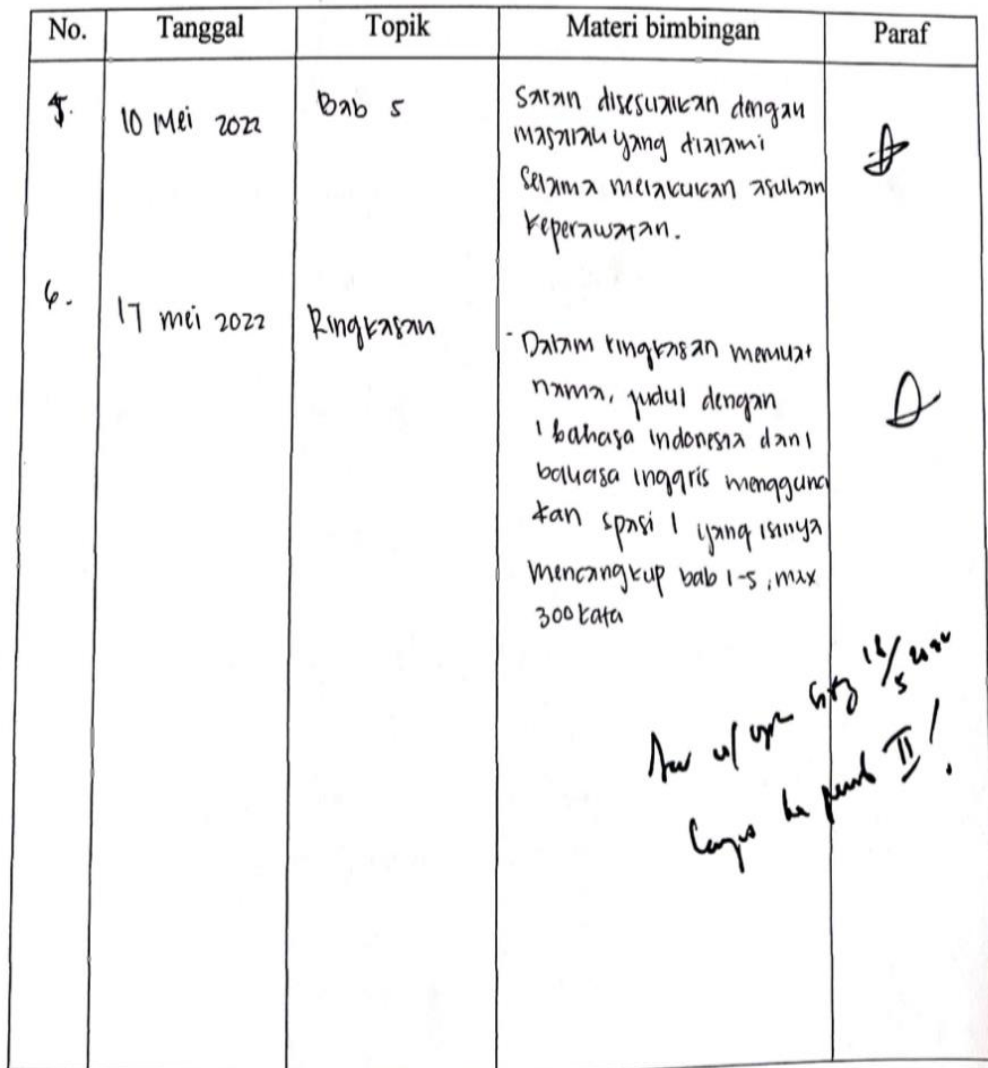 No. Tanggal Topik Materi bimbingan Paraf
5. 10 Mei 2022 Bab 5 Saran disesuaikan dengan
masalah yang dialami
selama melakukan asuhan
keperawatan.
6. 17 mei 2022 Ringkasan - Dalam ringkasan memuat
nama, judul dengan
1 bahasa indonesia dan 1
bahasa inggris mengguna
kan spasi 1 yang isinya
mencangkup bab 1-5, max
300 kata
II!